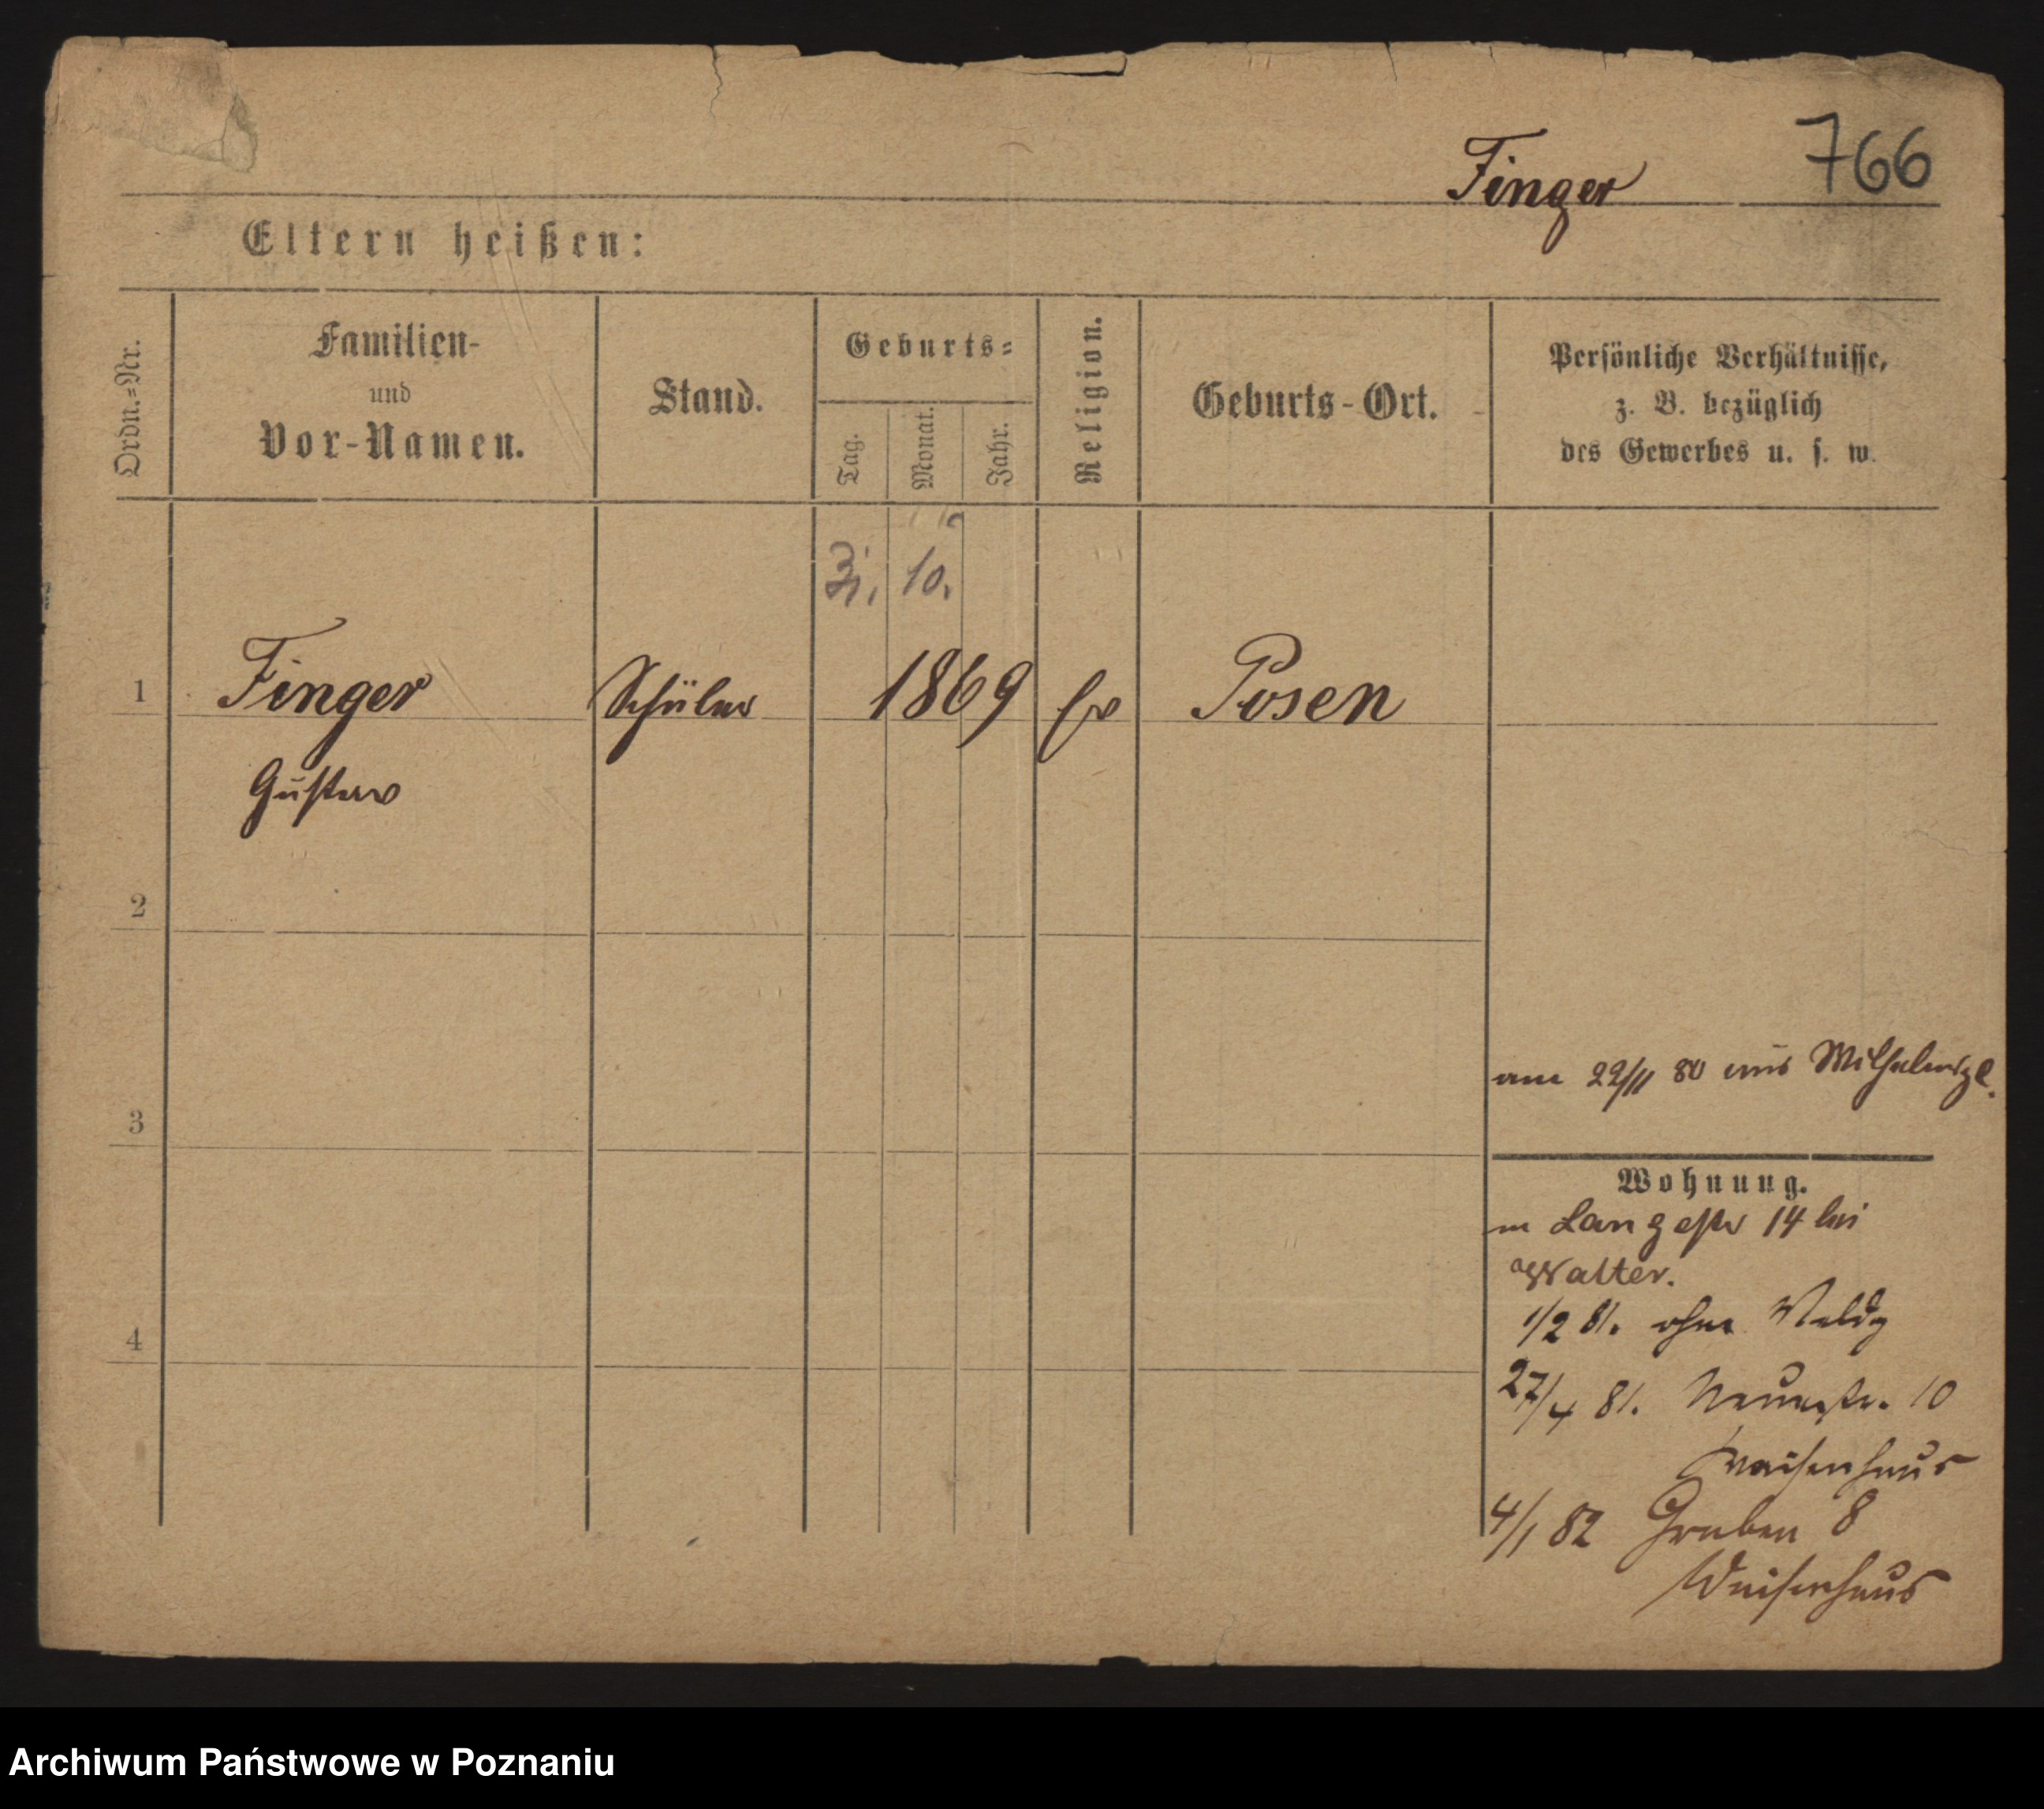 766
Finger
Eltern heißen:
Ordn.=Nr.
Familien-
und
Vor-Namen.
Stand.
Geburts=
Tag.
Monat.
Jahr.
Religion.
Geburts-Ort.
Persönliche Verhältnisse,
z. B. bezüglich
des Gewerbes u. s. w.
10.
1 Finger Schüler 1869 Posen
Gustav
2
3
4
22/11 80 aus Wilhelmspl.
Wohnung.
Langestr 14 bei
Walter.
1/2 81. ohne Meldg
27/4 81. Neuestr. 10
Waisenhaus
4/1 82 Graben 8
Waisenhaus
Archiwum Państwowe w Poznaniu